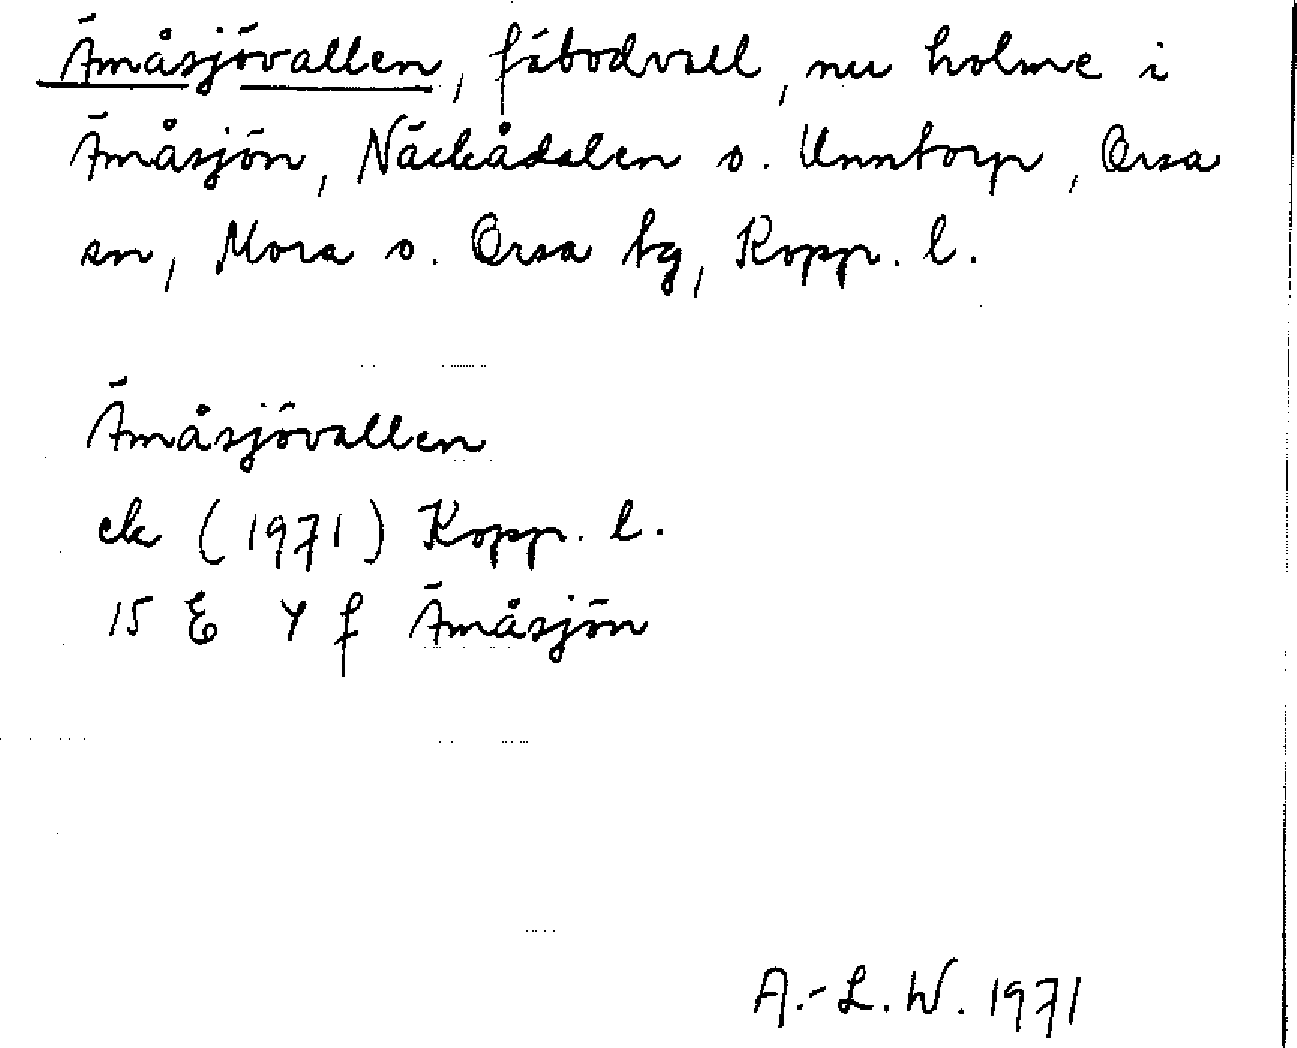 Ämåsjövallen, fäbodvall, nu holme i
Ämåsjön, Näckådalen o. Unntorp, Orsa
sn, Mora o. Orsa tg, Kopp. l.
Ämåsjövallen
ek (1971) Kopp. l.
15 E 4 f Ämåsjön
A.-L. W. 1971